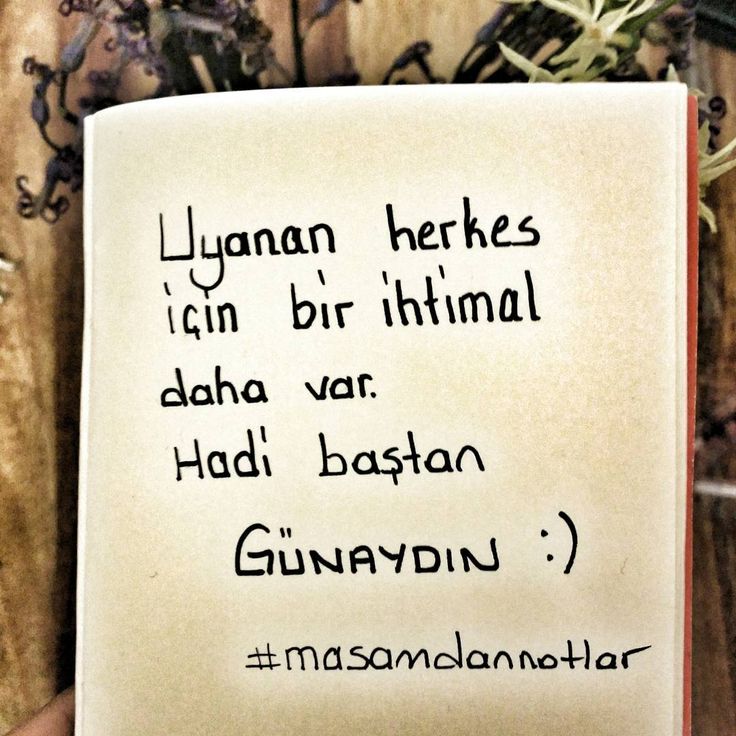 Uyanan herkes
için bir ihtimal
daha var.
Hadi baştan
GÜNAYDIN :)
#masamdannotlar